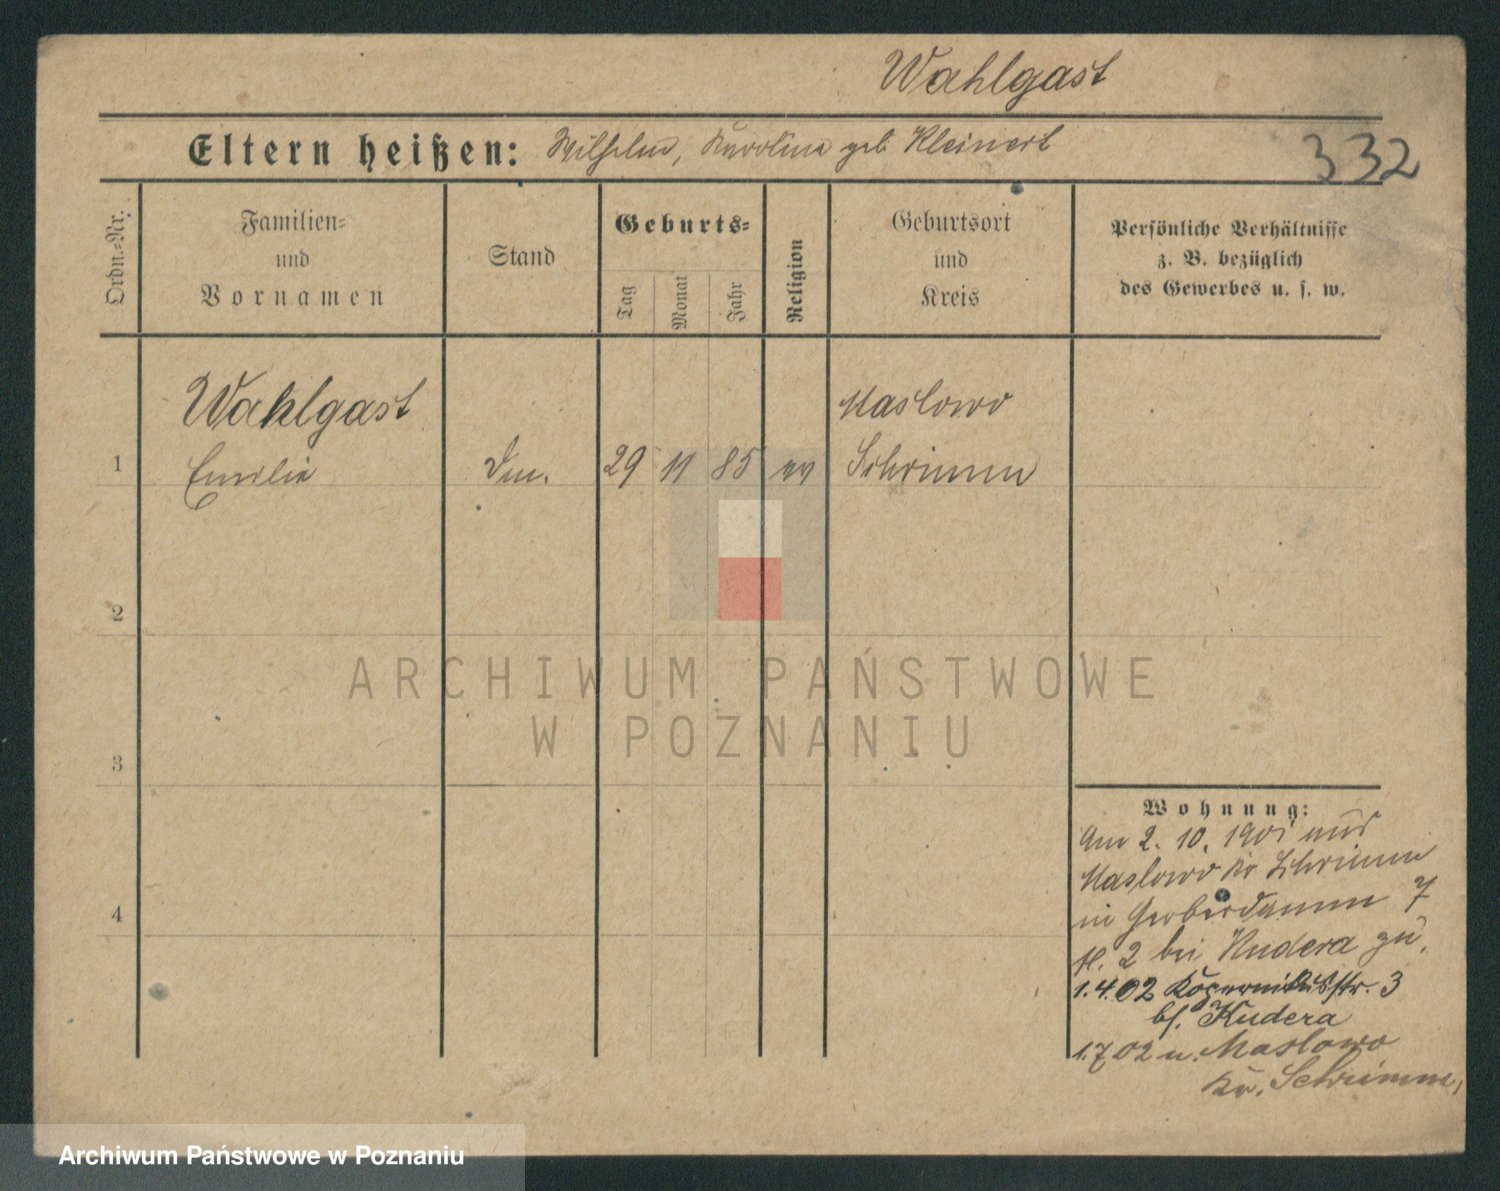 Wahlgast
Eltern heißen: Wilhelm, Karolina geb. Kleinert
332
Ordn.=Nr.
Familien=
und
Vornamen
Stand
Geburts=
Tag
Monat
Jahr
Religion
Geburtsort
und
Kreis
Persönliche Verhältnisse
z. B. bezüglich
des Gewerbes u. s. w.
Wahlgast
Maslowo
1 Emilie 29 11 85 ev Schrimm
2
3
4
ARCHIWUM PAŃSTWOWE
W POZNANIU
Wohnung:
Am 2. 10. 1901 aus
Maslowo Kr Schrimm
in Gerberdamm 7
H. 2 bei Kudera zu.
1.4.02 Kopernikusstr. 3
bs. Kudera
1.7.02 n. Maslowo
Kr. Schrimm.
Archiwum Państwowe w Poznaniu